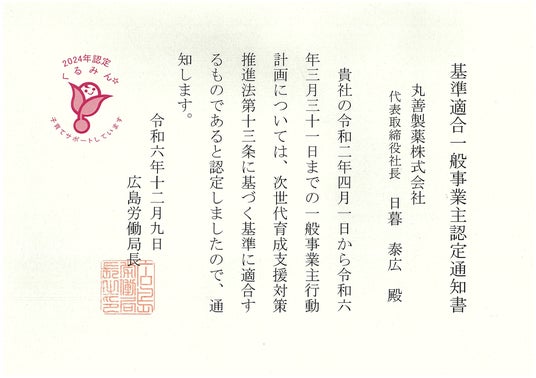 基準適合一般事業主認定通知書
丸善製薬株式会社
代表取締役社長　日暮　泰広　殿
貴社の令和二年四月一日から令和六
年三月三十一日までの一般事業主行動
計画については、次世代育成支援対策
推進法第十三条に基づく基準に適合す
るものであると認定しましたので、通
知します。
令和六年十二月九日
広島労働局長
2024年認定
くるみん
子育てサポートしています